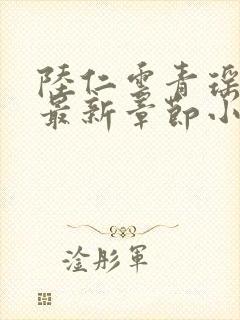 陸仁雲青瑶
最新章節小
淦彤軍